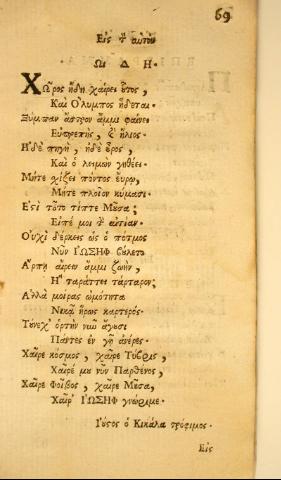 69
Εἰς τ̃ αὐτὸν
ΩΙ ΔΗ·
Χῶρος ἤδη χαίρει ὗτος,
Καὶ Ὄλυμπος ἥδεται·
Ξύμπαν ἄστρον ἄμμι φαίνει
Εὐπρεπὴς, ὁ ἥλιος·
Ἡδὲ πηγὴ, ἠδὲ ὄρος,
Καὶ ὁ λειμὼν γηθέει·
Μήτε χίζει πόντος εὔρω,
Μήτε πλοῖον κύμασι·
Ἐςὶ τῦτο τίπτε Μῦσα;
Εἰπέ μοι τ̃ αἰτίαν·
Οὐχὶ δέρκεις ὡς ὁ πότμος
Νῦν ΙΩΣΗΦ βύλετο
Ἅρπῃ αἴρειν ἄμμι ζωὴν,
Ἢ ταράττει τάρταρον;
Ἀλλὰ μοίρας ὠμότητα
Νικᾷ ἥρως καρτερός·
Τύνεχ' ὁρτὴν νῶϊ ἄγυσι
Πάντες ἐν γῇ ἀνέρες·
Χαῖρε κόσμος, χαῖρε Τύβρις,
Χαῖρέ μοι νῦν Παρθένος,
Χαῖρε Φοῖβος, χαῖρε Μῦσα,
Χαῖρ' ΙΩΣΗΦ γνώριμε·
ὁ Κικάλα τρόφιμος·
Εἰς